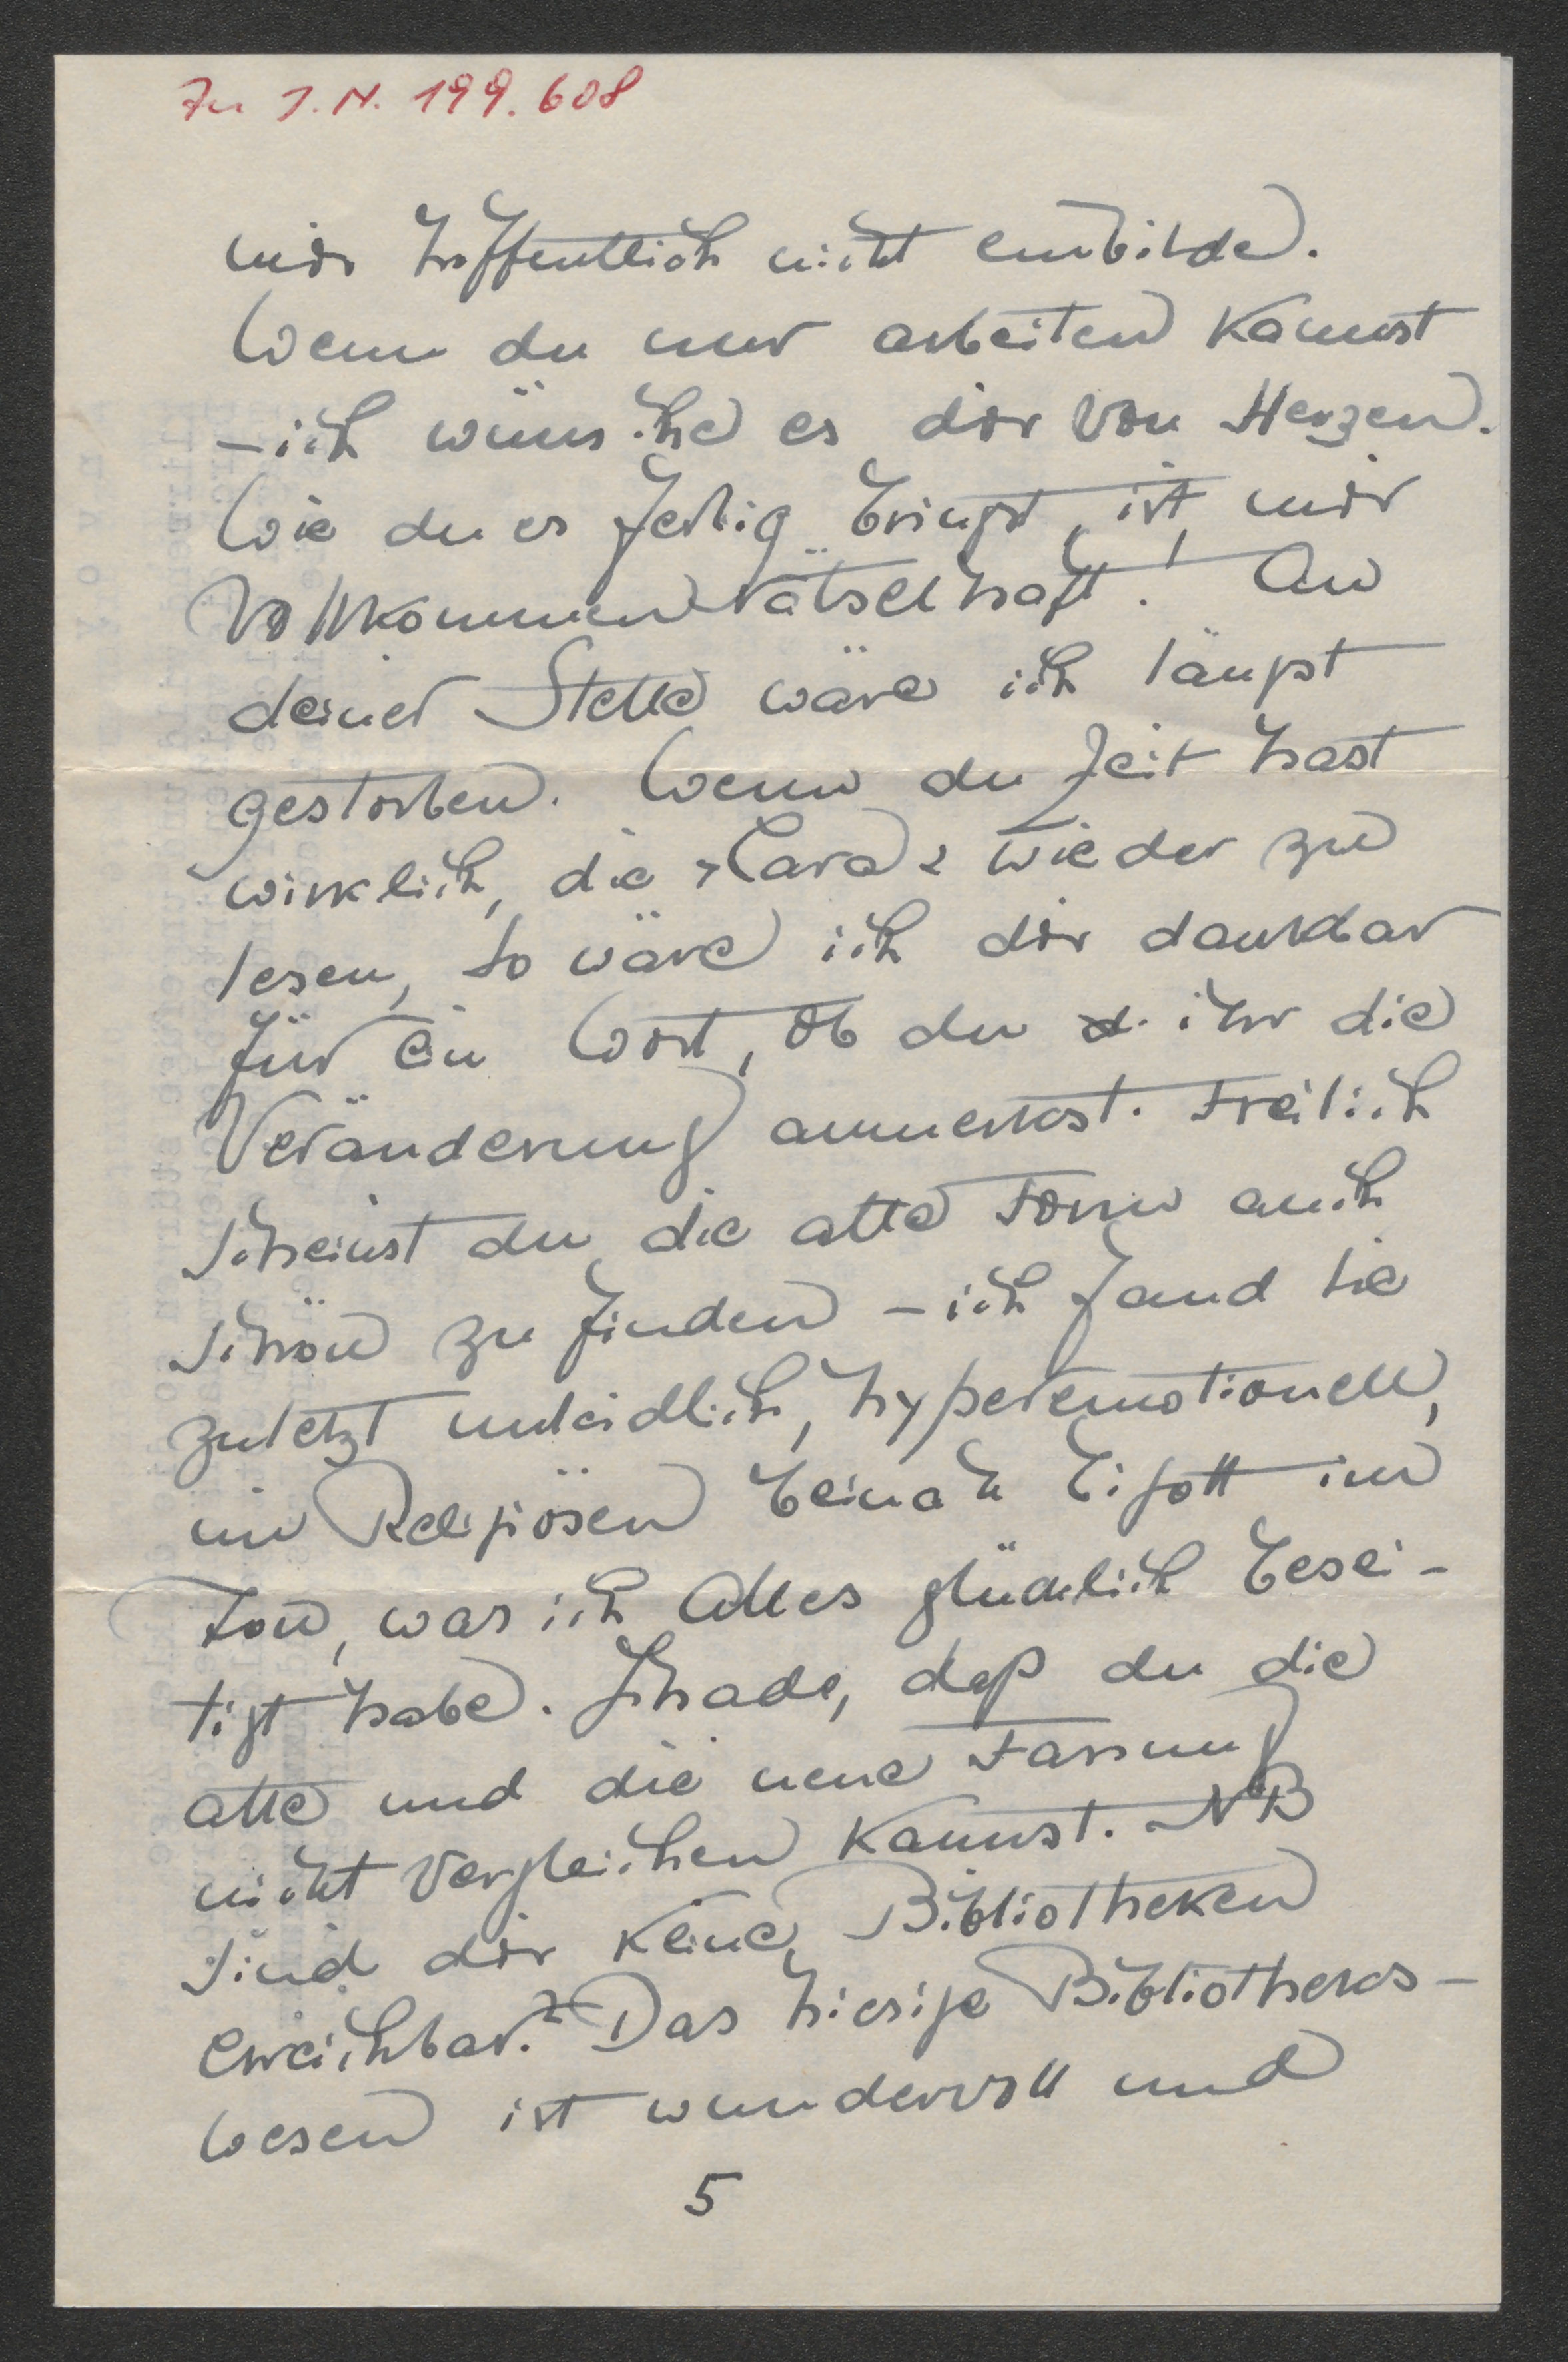 Zu I.N. 199.608
mir hoffentlich nicht einbilde.
Wenn du nur arbeiten kannst
– ich wünsche es dir von Herzen.
Wie du es fertig bringst, ist mir
vollkommen rätselhaft! An
deiner Stelle wäre ich längst
gestorben. Wenn du Zeit hast
wirklich, die »Cara« wieder zu
lesen, so wäre ich dir dankbar
für ein Wort, ob du ihr die
Veränderung anmerkst. Freilich
scheinst du die alte Form auch
schön zu finden – ich fand sie
zuletzt unleidlich, hyperemotionell,
im Religiösen beinah bigott im
Ton, was ich Alles glücklich besei-
tigt habe. Schade, daß du die
alte und die neue Fassung
nicht vergleichen kannst. NB
sind dir keine Bibliotheken
erreichbar? Das hiesige Biblioheks-
wesen ist wundervoll und
5